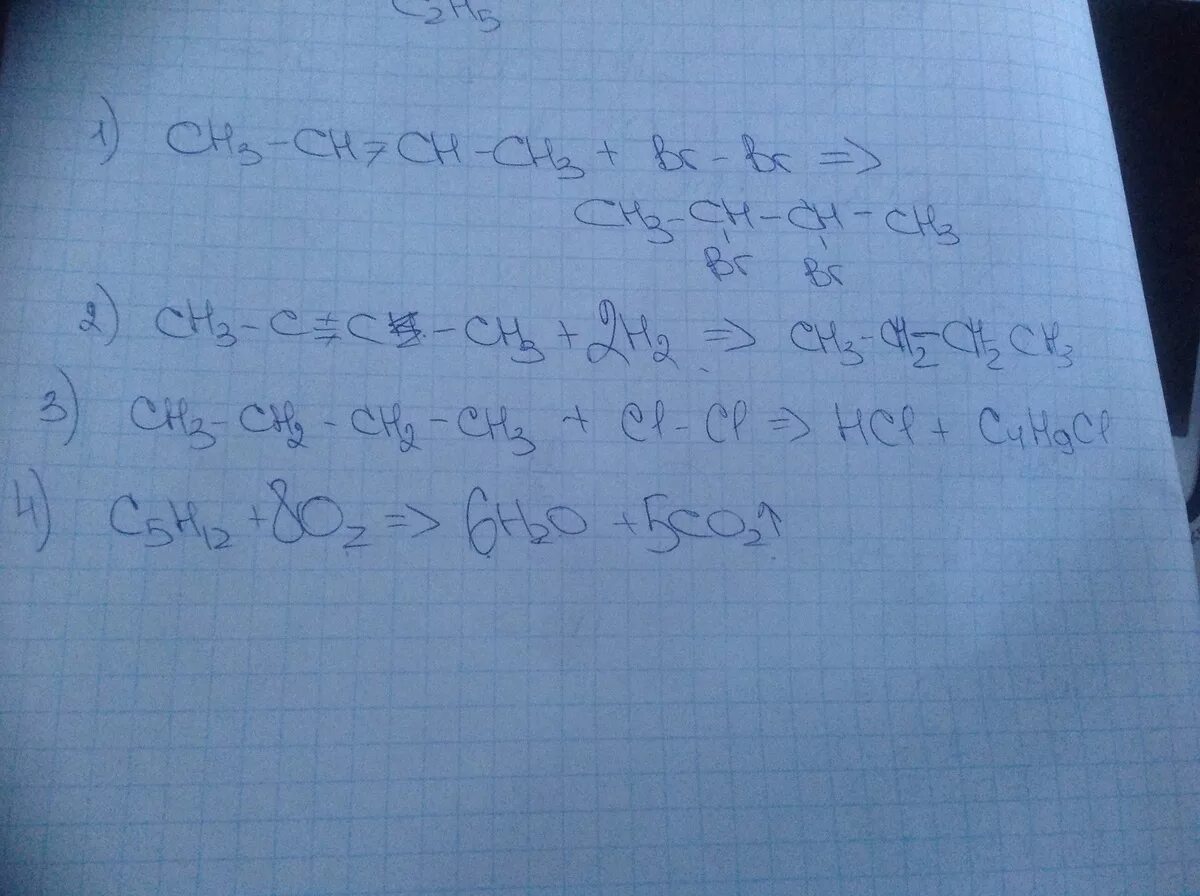 C₂H₅
1) CH₃-CH=CH-CH₃ + Br-Br ⇒
CH₃-CH-CH-CH₃
Br Br
2) CH₃-C≡C-CH₃ + 2H₂ ⇒ CH₃-CH₂-CH₂CH₃
3) CH₃-CH₂-CH₂-CH₃ + Cl-Cl ⇒ HCl + C₄H₉Cl
4) C₅H₁₂ + 8O₂ ⇒ 6H₂O + 5CO₂↑